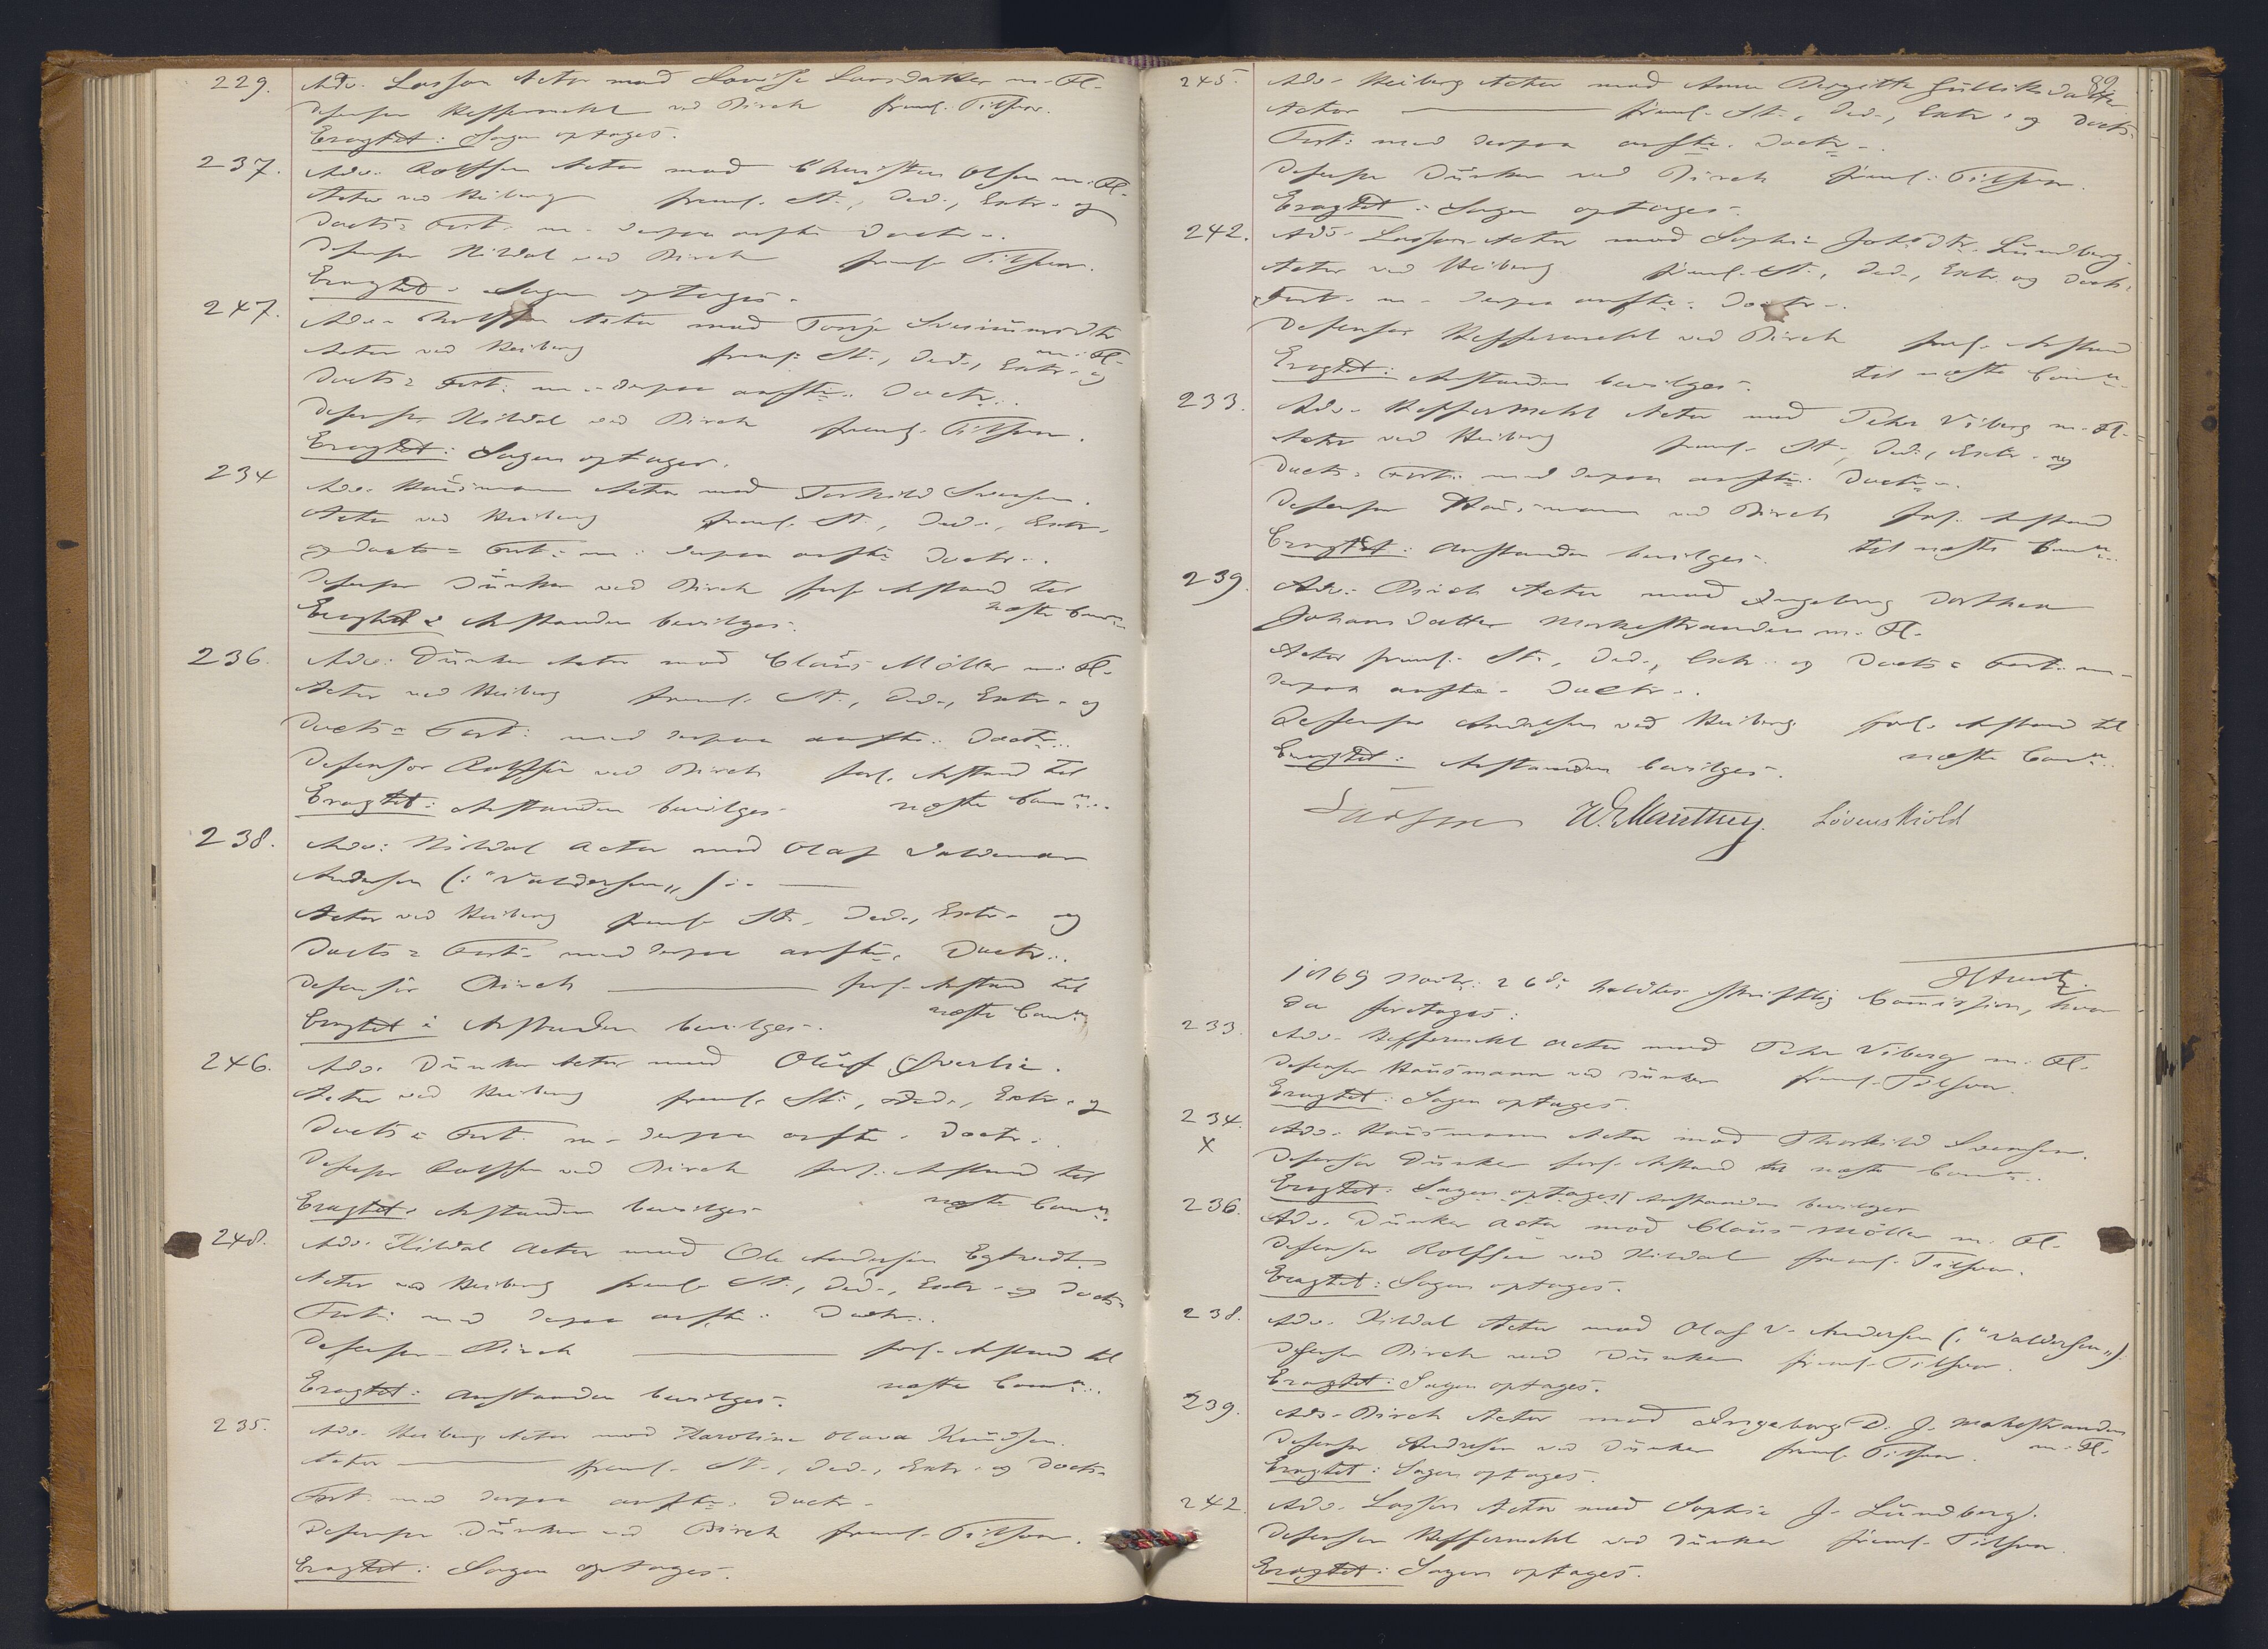 229. Adv. Lasson Actor mod Lovise Larsdatter m. Fl.
Defensor Heffermehl ved Birch freml. Tilsvar.
Eragtet: Sagen optages.
237. Adv. Rolffsen Actor mod Christen Olsen m. Fl.
Actor ved Heiberg freml. St., Ded., Extr. og
Docts= Fort. m. derpaa anfte Doctr.
Defensor Kildal ved Birch freml. Tilsvar.
Eragtet: Sagen optages.
247. Adv. Rolffsen Actor mod Tonje Sveinunsdtr
m. Fl.
Actor ved Heiberg freml. St., Ded., Extr. og
Docts= Fort. m. derpaa anfte. Doctr.
Defensor Kildal ved Birch freml. Tilsvar.
Eragtet: Sagen optages.
234 Adv. Hausmann Actor mod Torkild Svensen.
Actor ved Heiberg freml. St., Ded., Extr.
og Docts= Fort. m. derpaa anfte Doctr.
Defensor Dunker ved Birch forl. Anstand til
næste Comn.
Eragtet: Anstanden bevilges.
236. Adv. Dunker Actor mod Claus Møller m. Fl.
Actor ved Heiberg freml. St., Ded., Extr. og
Docts= Fort. med derpaa anfte. Doctr.
Defensor Rolffsen ved Birch forl. Anstand til
Eragtet: Anstanden bevilges. næste Comn.
238. Adv. Kildal Actor mod Olaf Valdemar
Andersen (: "Valdersen" :).
Actor ved Heiberg freml. St., Ded., Extr. og
Docts= Fort. med derpaa anfte. Doctr.
Defensor Birch forl. Anstand til
Eragtet: Anstanden bevilges. næste Comn.
246. Adv. Dunker Actor mod Oluf Sverlie.
Actor ved Heiberg freml. St., Ded., Extr. og
Docts= Fort. m. derpaa anfte. Doctr.
Defensor Rolffsen ved Birch forl. Anstand til
Eragtet: Anstanden bevilges. næste Comn.
248. Adv. Kildal Actor mod Ole Andersen
Actor ved Heiberg freml. St., Ded., Extr. og Docts=
Fort. med derpaa anfte. Doctr.
Defensor Birch forl. Anstand til
Eragtet: Anstanden bevilges. næste Comn.
235. Adv. Heiberg Actor mod Karoline Olava Knudsen.
Actor freml. St., Ded., Extr. og Docts=
Fort. med derpaa anfte. Doctr.
Defensor Dunker ved Birch freml. Tilsvar.
Eragtet: Sagen optages.
89
245. Adv. Heiberg Actor mod Anne Birgitte Gulliksdatter
Actor freml. St., Ded., Extr. og Docts=
Fort. med derpaa anfte. Doctr.
Defensor Dunker ved Birch freml. Tilsvar.
Eragtet: Sagen optages.
242. Adv. Lasson Actor mod Sophie Johsdtr. Lundberg.
Actor ved Heiberg freml. St., Ded., Extr. og Docts=
Fort. m. derpaa anfte. Doctr.
Defensor Heffermehl ved Birch forl. Anstand
Eragtet: Anstanden bevilges. til næste Comn.
233. Adv. Heffermehl Actor mod Peter Viberg m. Fl.
Actor ved Heiberg freml. St., Ded., Extr. og
Docts= Fort. med derpaa anfte. Doctr.
Defensor Hausmann ved Birch forl. Anstand
Eragtet: Anstanden bevilges. til næste Comn.
239. Adv. Birch Actor mod Ingeborg Dorthea
Johansdatter Mokestranden m. Fl.
Actor freml. St., Ded., Extr. og Docts= Fort. m.
derpaa anfte. Doctr.
Defensor Andresen ved Heiberg forl. Anstand til
Eragtet: Anstanden bevilges. næste Comn.
W. E. Manthey. Løvenskiold
1869 Novbr. 26de holdtes skriftlig Commission, hvor
da foretoges:
233. Adv. Heffermehl Actor mod Peter Viberg m. Fl.
Defensor Hausmann ved Dunker freml. Tilsvar.
Eragtet: Sagen optages.
234. Adv. Hausmann Actor mod Thorkild Svensen.
X Defensor Dunker forl. Anstand til næste Comn.
Eragtet: Sagen optages Anstanden bevilges
236. Adv. Dunker Actor mod Claus Møller m. Fl.
Defensor Rolffsen ved Kildal freml. Tilsvar.
Eragtet: Sagen optages.
238. Adv. Kildal Actor mod Olaf V. Andersen (: "Valdersen" :)
Defensor Birch ved Dunker freml. Tilsvar.
Eragtet: Sagen optages.
239. Adv. Birch Actor mod Ingeborg D. J. Mokestranden
m. Fl.
Defensor Andresen ved Dunker freml. Tilsvar.
Eragtet: Sagen optages.
242. Adv. Lasson Actor mod Sophie J. Lundberg.
Defensor Heffermehl ved Dunker freml. Tilsvar.
Eragtet: Sagen optages.